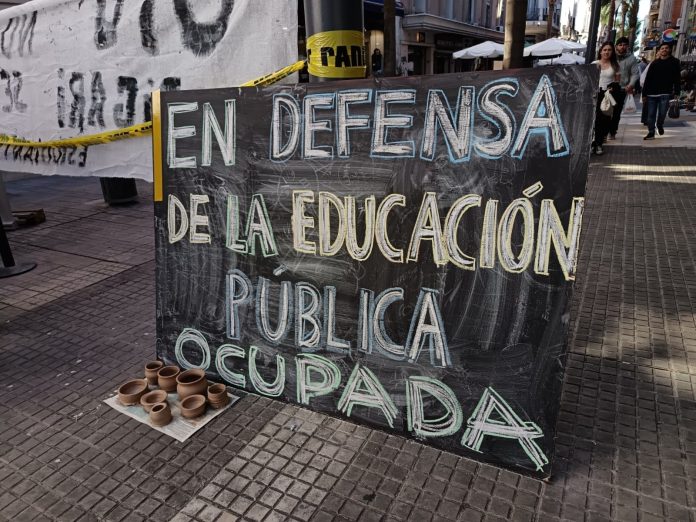 EN DEFENSA
DE LA EDUCACIÓN
PÚBLICA
OCUPADA